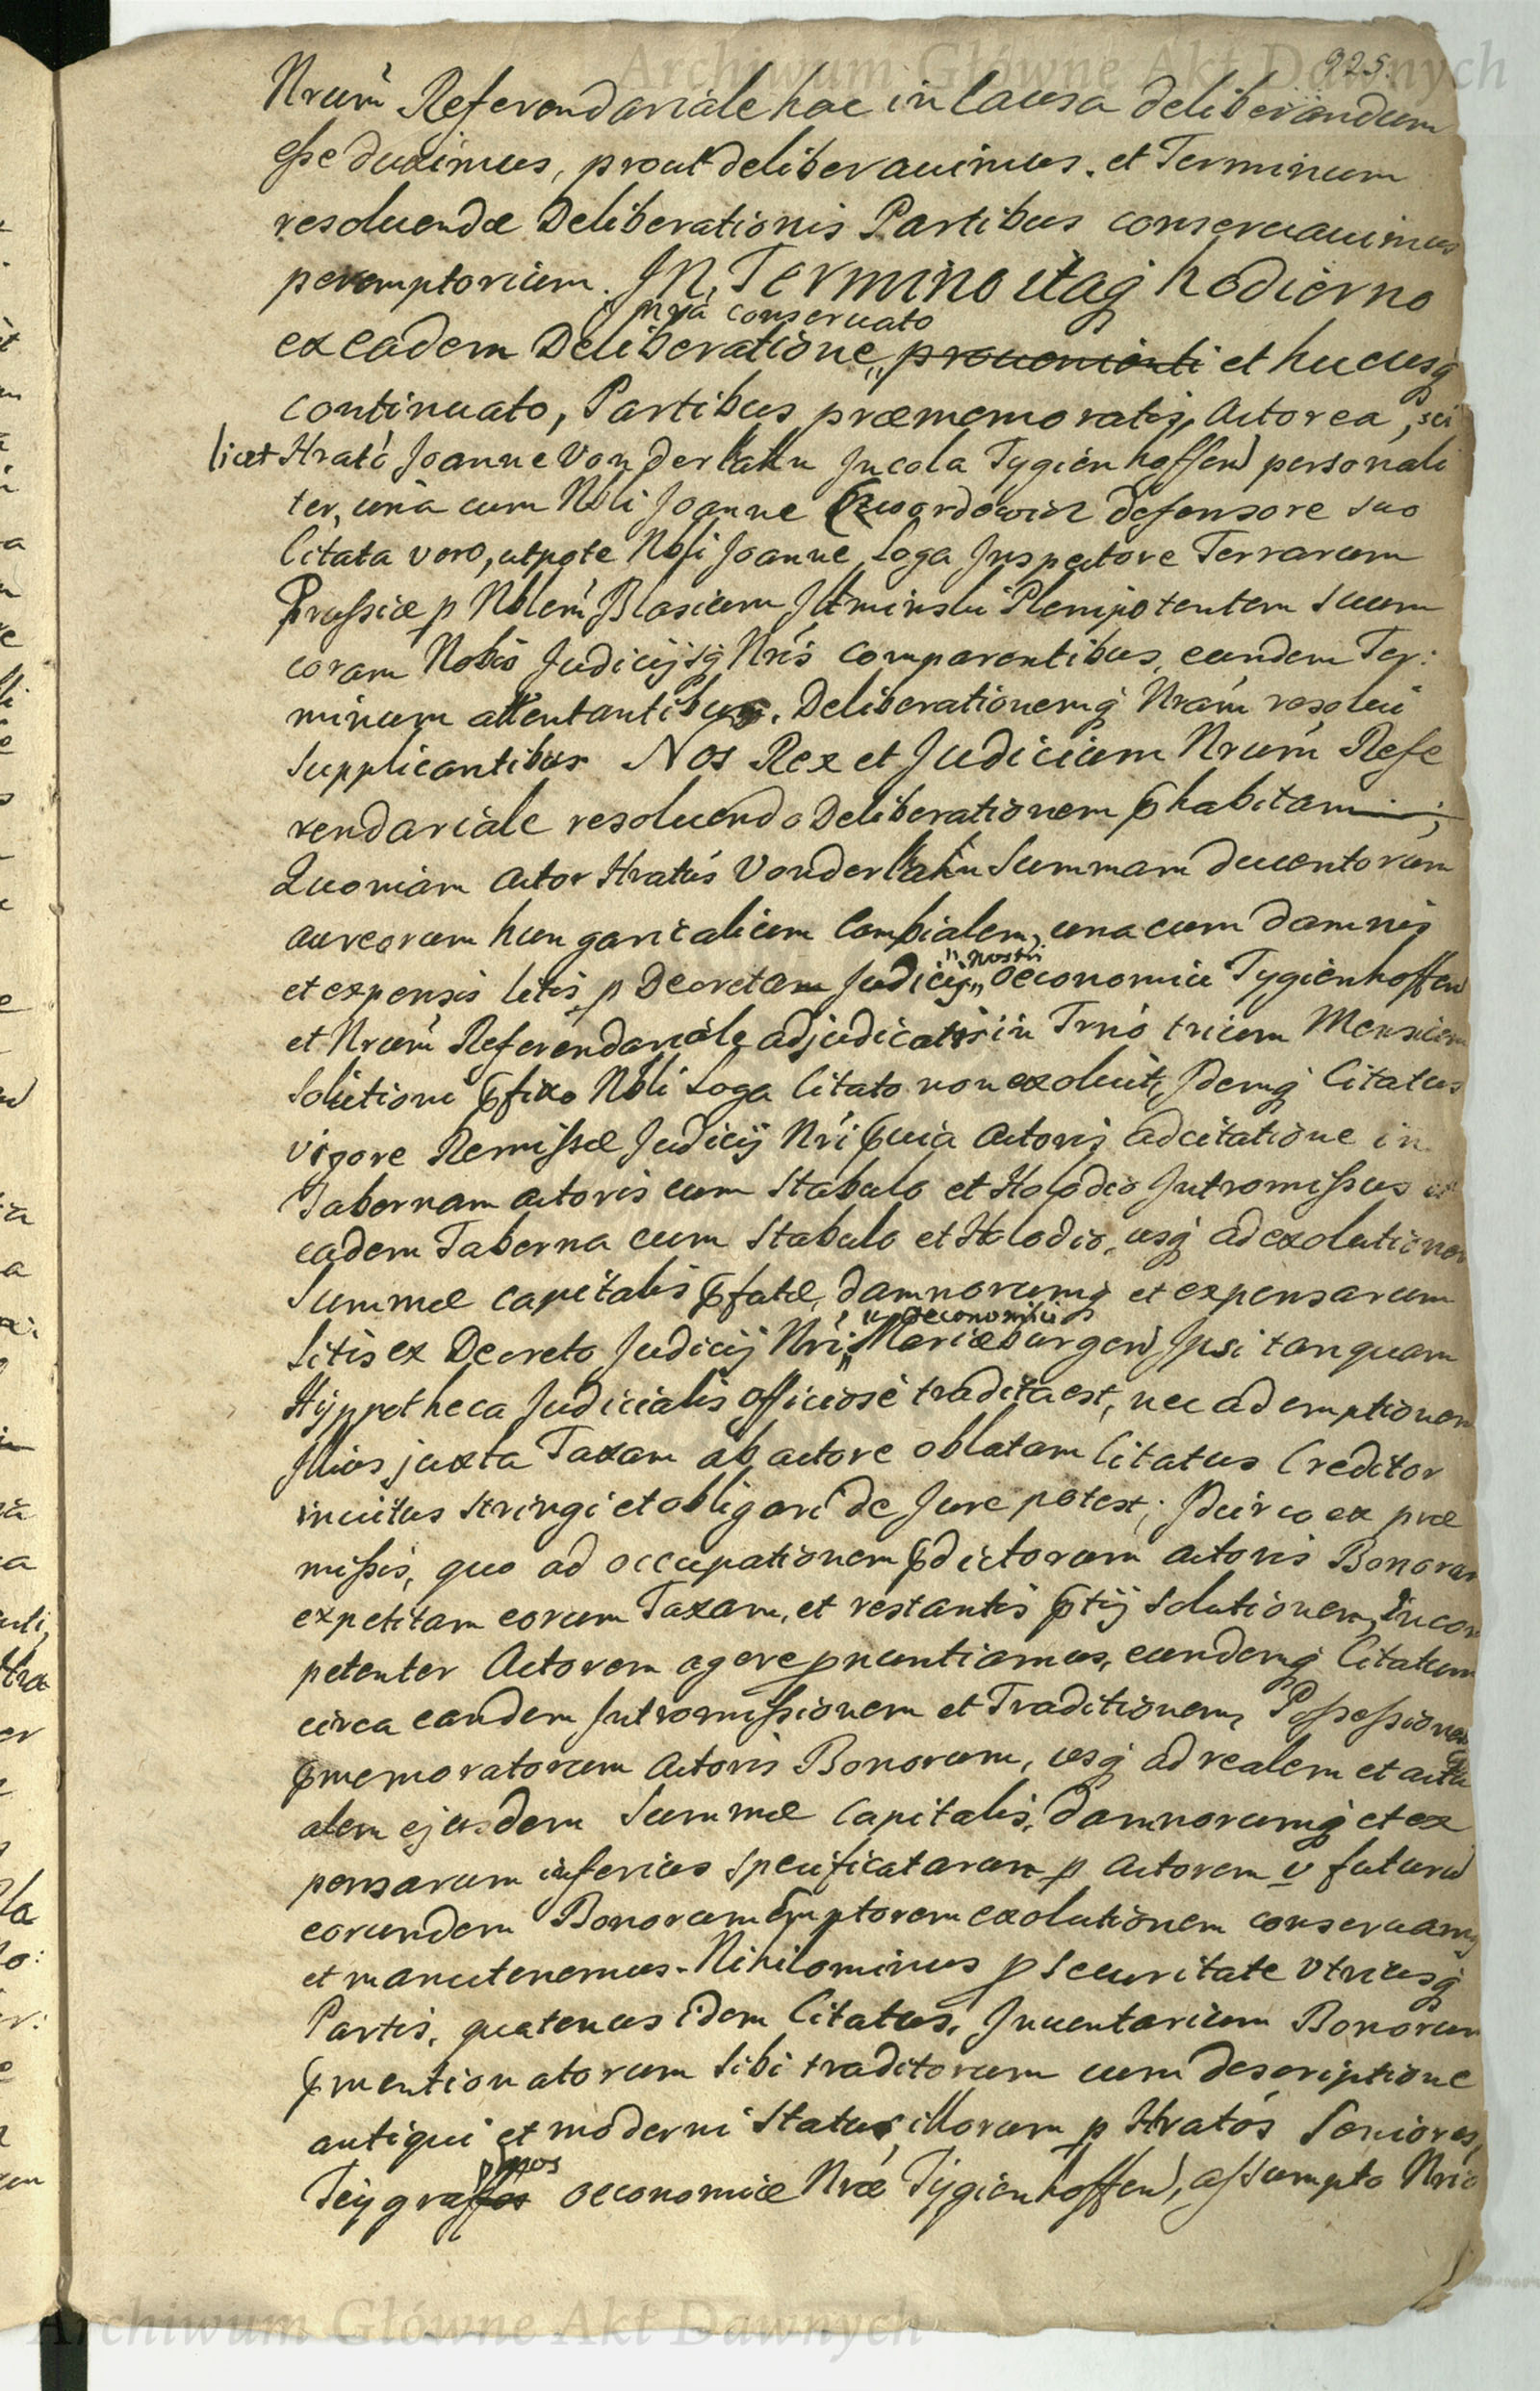 Archiwum Główne Akt Dawnych
925.
Nrum̃ Referendariale hac in Causa deliberandum
esse duximus, prout deliberauimus. et Terminum
resoluendæ Deliberationis Partibus conseruauimus
peremptorium. IN Termino itaq hodierno
nr̃a conseruato
ex eadem Deliberatione prouenienti et hucusq
continuato, Partibus præmemoratis, Actorea, sci
licet Hrato Joanne Vonderhahn Incola Tygienhoffen personali
ter, una cum Nbli Joanne defensore suo
Citata vero, utpote Nbli Joanne Loga Inspectore Terrarum
Prussiæ p Nblem Blasium Plenipotentem suum
coram Nobis Judicijsq Nris comparentibus, eundem Ter:
minum attentantibus. Deliberationemq Nram resolui
supplicantibus Nos Rex et Judicium Nrum Refe
rendariale resoluendo Deliberationem phabitam;
Quoniam Actor Hratus Vonderhahn Summam ducentorum
aureorum hungaricalium Cambialem, una cum damnis
nostri
et expensis litis p Decretum Judicij oeconomici Tygienhoffen
et Nrum Referendariale adjudicatis in Trno trium Mensium
Solutioni pfixo Nbli Loga Citato non exoluit, Idemq Citatus
vigore Remissæ Judicij Nri Actoris adcitatione in
Tabernam Actoris cum Stabulo et Holodio Intromissus et
eadem Taberna cum Stabulo et Holodio, usq ad exolutionem
Summæ capitalis pfatæ, damnorumq et expensarum
oeconomici
Litis ex Decreto Judicij Nri Mariæburgen Ipsi tanquam
Hyppotheca Judicialis officiose tradita est, nec ad emptionem
Illius juxta Taxam ab actore oblatam Citatus Creditor
inuitus stringi et obligari de Jure potest; Idcirco ex præ
missis, quo ad occupationem pdictorum actoris Bonorum
expetitam eorum Taxam, et restantis ptij Solutionem, Incom
petenter Actorem agere pnuntiamus, eundemq Citatum
circa eandem Intromissionem et Traditionem, Possessionem
pmemoratorum Actoris Bonorum, usq ad realem et actu
alem ejusdem Summæ Capitalis, damnorumq et ex
pensarum inferius specificatarum p Actorem v futurum
eorundem Bonorum Emptorem exolutionem conseruamus
et manutenemus. Nihilominus p securitate vtriusq
Partis, quatenus idem Citatus, Inuentarium Bonorum
pmentionatorum Sibi traditorum cum descriptione
antiqui et moderni Status, illorum p Hratos Seniores,
oeconomiæ Nræ Tygienhoffen, assumpto
Archiwum Główne Akt Dawnych